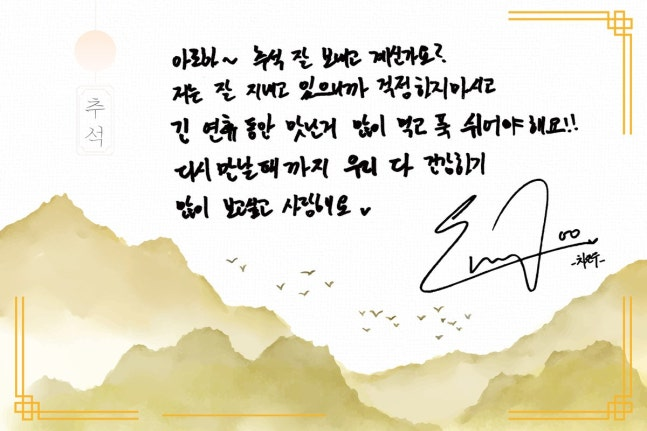 추석
아로하~ 추석 잘 보내고 계신가요?
저는 잘 지내고 있으니까 걱정하지마시고
긴 연휴동안 맛난거 많이 먹고 푹 쉬어야해요!!
다시 만날때까지 우리 다 건강하기
많이 보고싶고 사랑해요 ♥
-차은우-